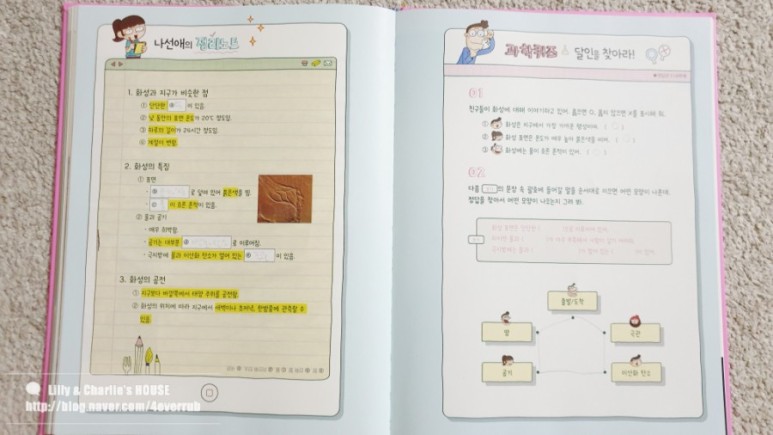 나선애의 정리노트
1. 화성과 지구가 비슷한 점
① 단단한 이 있음.
② 낮 동안의 표면 온도가 20℃ 정도임.
③ 하루의 길이가 24시간 정도임.
④ 계절이 변함.
2. 화성의 특징
① 표면
로 덮여 있어 붉은색을 띰.
이 흐른 흔적이 있음.
② 물과 공기
- 매우 희박함.
- 공기는 대부분 로 이루어짐.
- 극지방에 물과 이산화 탄소가 얼어 있는 이 있음.
3. 화성의 공전
① 지구보다 바깥쪽에서 태양 주위를 공전함.
② 화성의 위치에 따라 지구에서 새벽이나 초저녁, 한밤중에 관측할 수
있음.
과학퀴즈 달인을 찾아라!
01
친구들이 화성에 대해 이야기하고 있어. 옳으면 O, 옳지 않으면 X를 표시해 줘.
① 화성은 지구에서 가장 가까운 행성이야. ( )
② 화성 표면은 온도가 매우 높아 붉은색을 띠어. ( )
③ 화성에는 물이 흐른 흔적이 있어. ( )
02
다음 의 문장 속 괄호에 들어갈 말을 순서대로 이으면 어떤 모양이 나온대.
정답을 찾아서 어떤 모양이 나오는지 그려 봐.
물방울
땅
극관
공기
이산화 탄소
Lilly & Charlie's HOUSE
http://blog.naver.com/4everrub